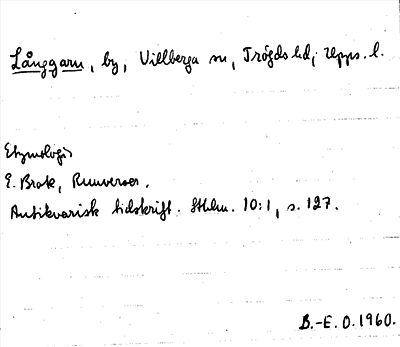 Långgarn, by, Villberga sn, Trögds hd, Upps. l.
Etymologi
E. Brate, Runverser.
Antikvarisk tidskrift. Sthlm. 10:1, s. 127.
B.-E. O. 1960.